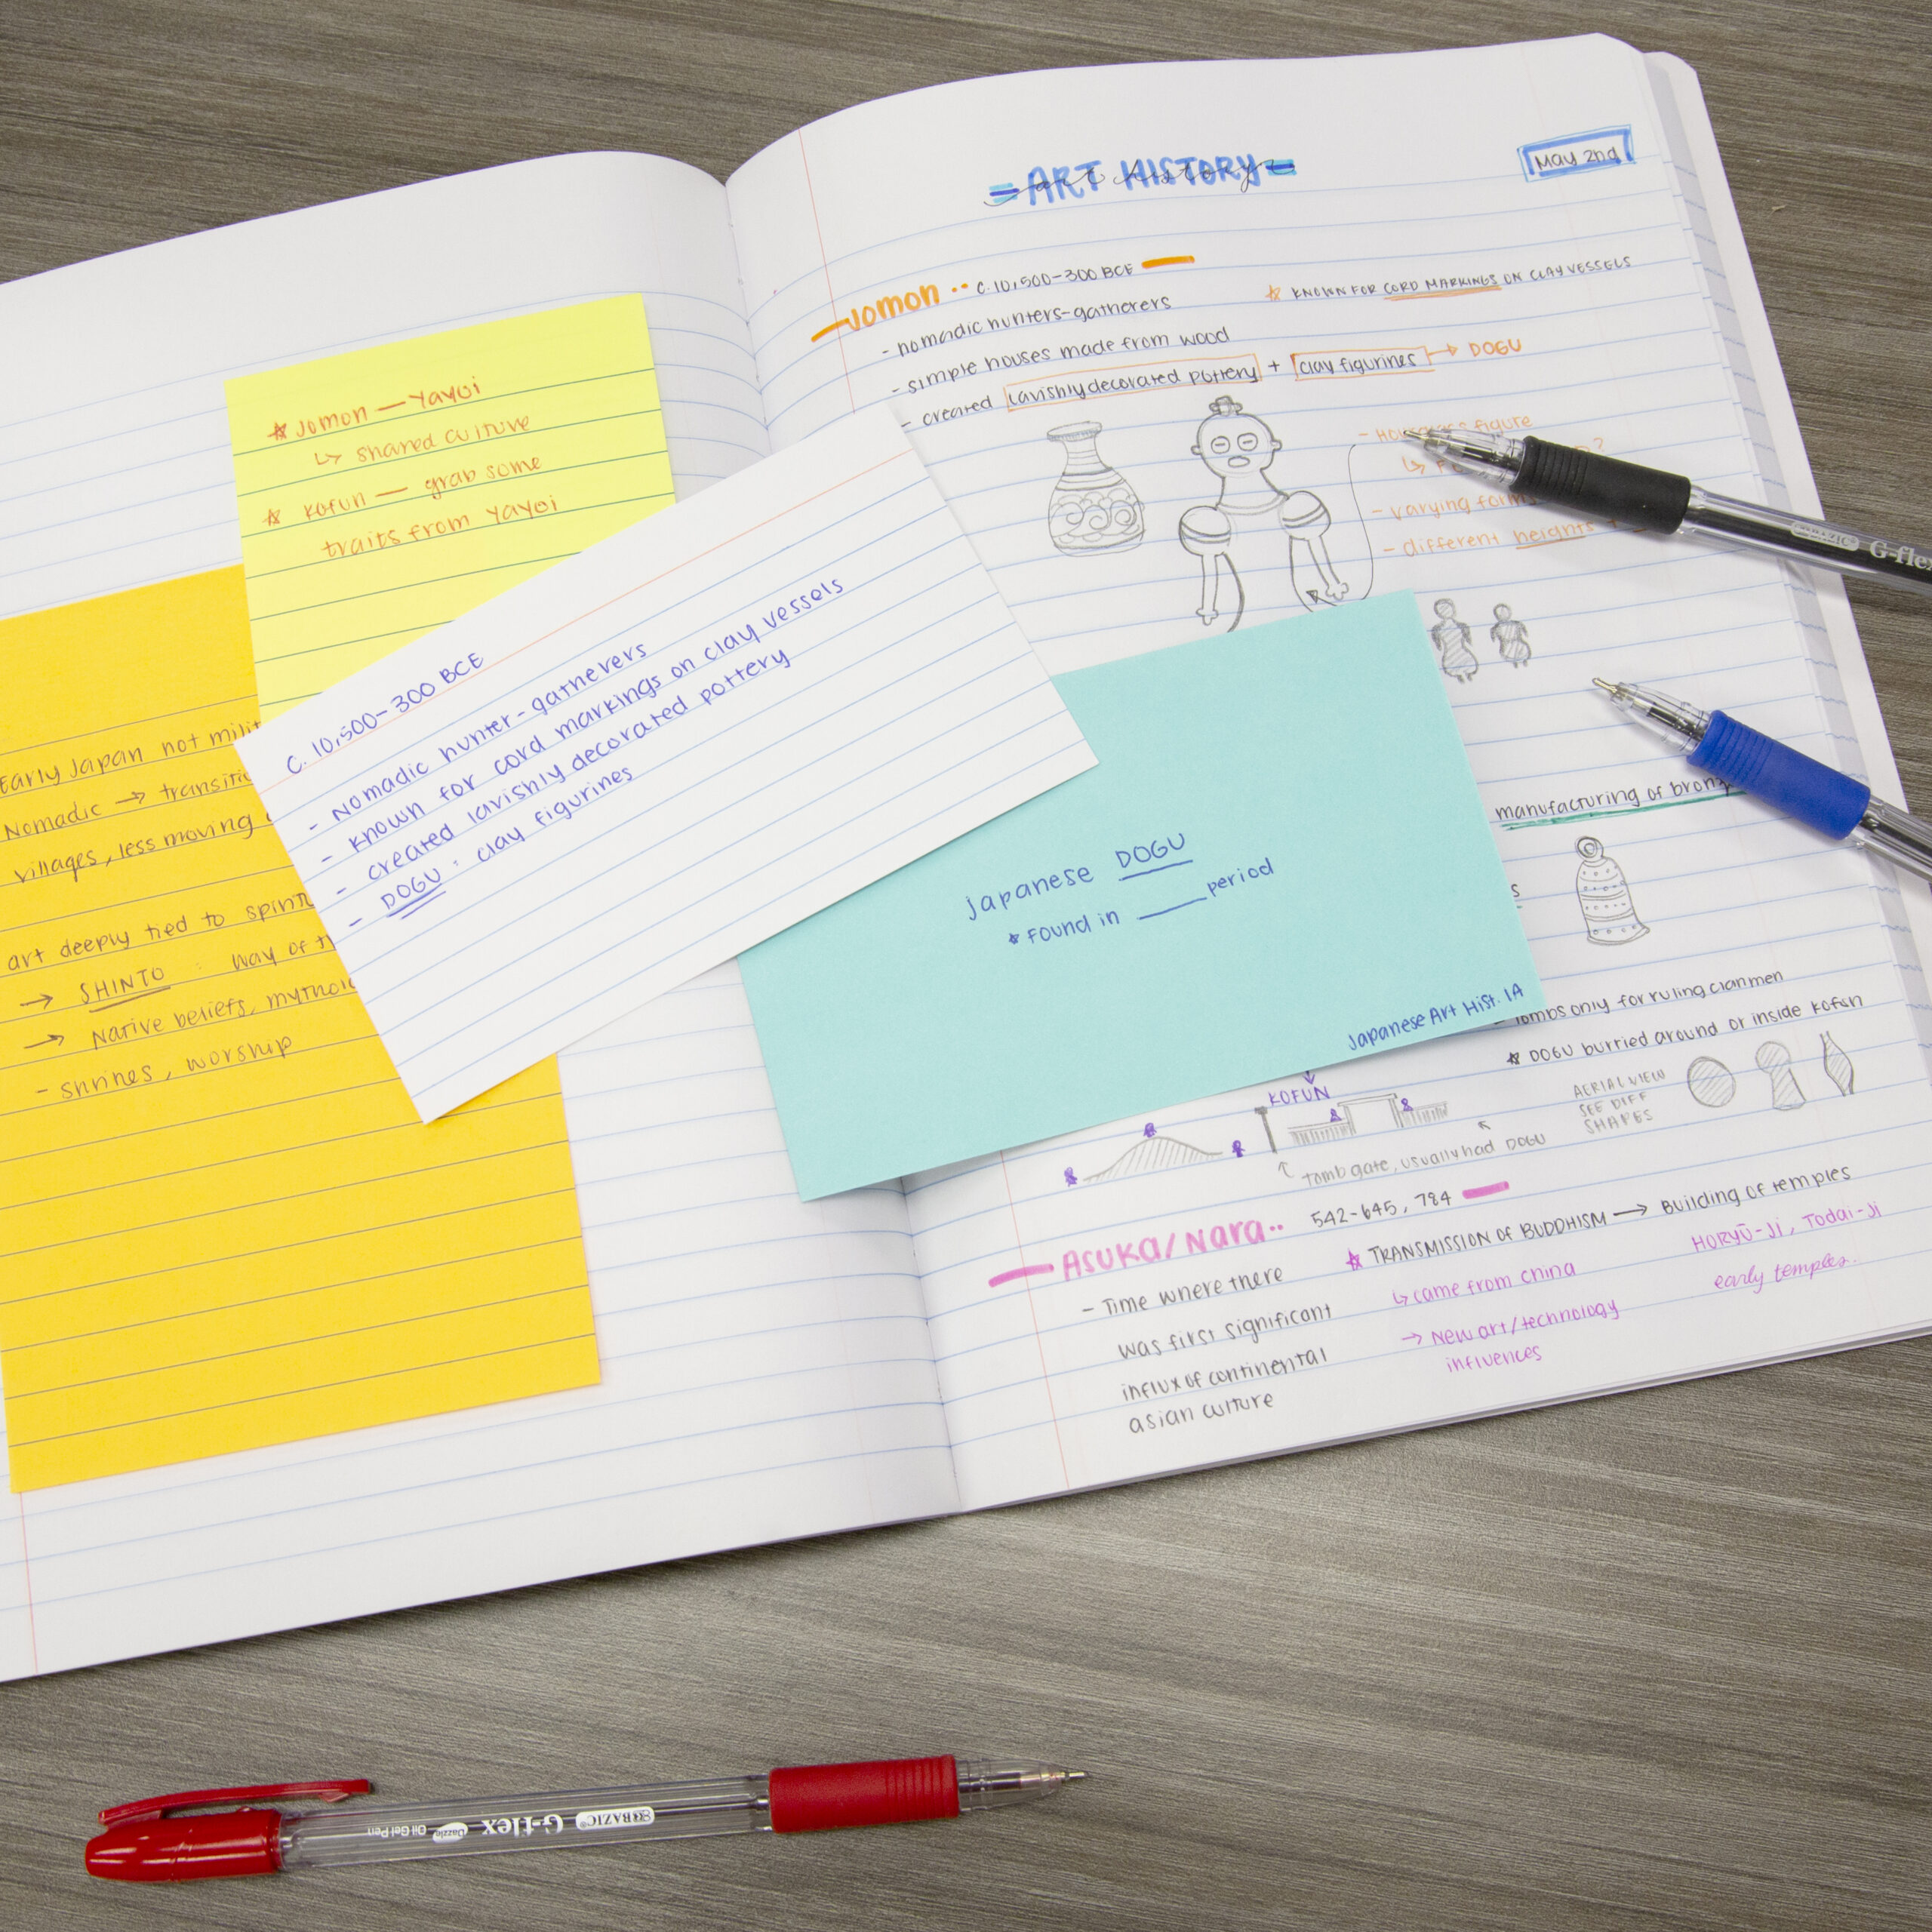 Jomon — Yayoi
↳ shared culture
Kofun — grab some
traits from Yayoi
Early Japan not
Nomadic →
villages, less moving
art deeply tied to
→ SHINTO : way of
→ Native beliefs,
- shrines, worship
C. 10,500-300 BCE
- Nomadic hunter-gatherers
- known for cord markings on clay vessels
- created lavishly decorated pottery
- DOGU : clay figurines
Japanese DOGU
* found in ____ period
Japanese Art Hist. 1A
= ART HISTORY =
art history
May 2nd
Jomon ·· C. 10,500-300 BCE
- nomadic hunters-gatherers
☆ KNOWN FOR CORD MARKINGS ON CLAY VESSELS
- simple houses made from wood
- created lavishly decorated pottery + clay figurines → DOGU
figure
- varying
- different heights
manufacturing of
Tombs only for ruling clanmen
☆ DOGU burried around or inside kofun
AERIAL VIEW
SEE DIFF
SHAPES
KOFUN
tomb gate, usually had DOGU
ASUKA/Nara ·· 542-645, 784
- Time where there
was first significant
influx of continental
asian culture
★ TRANSMISSION OF BUDDHISM → Building of temples
↳ came from china
→ New art/technology
influences
HORYŪ-Ji, Todai-Ji
early temples.
BAZIC G-flex
BAZIC G-flex Dazzle Oil Gel Pen